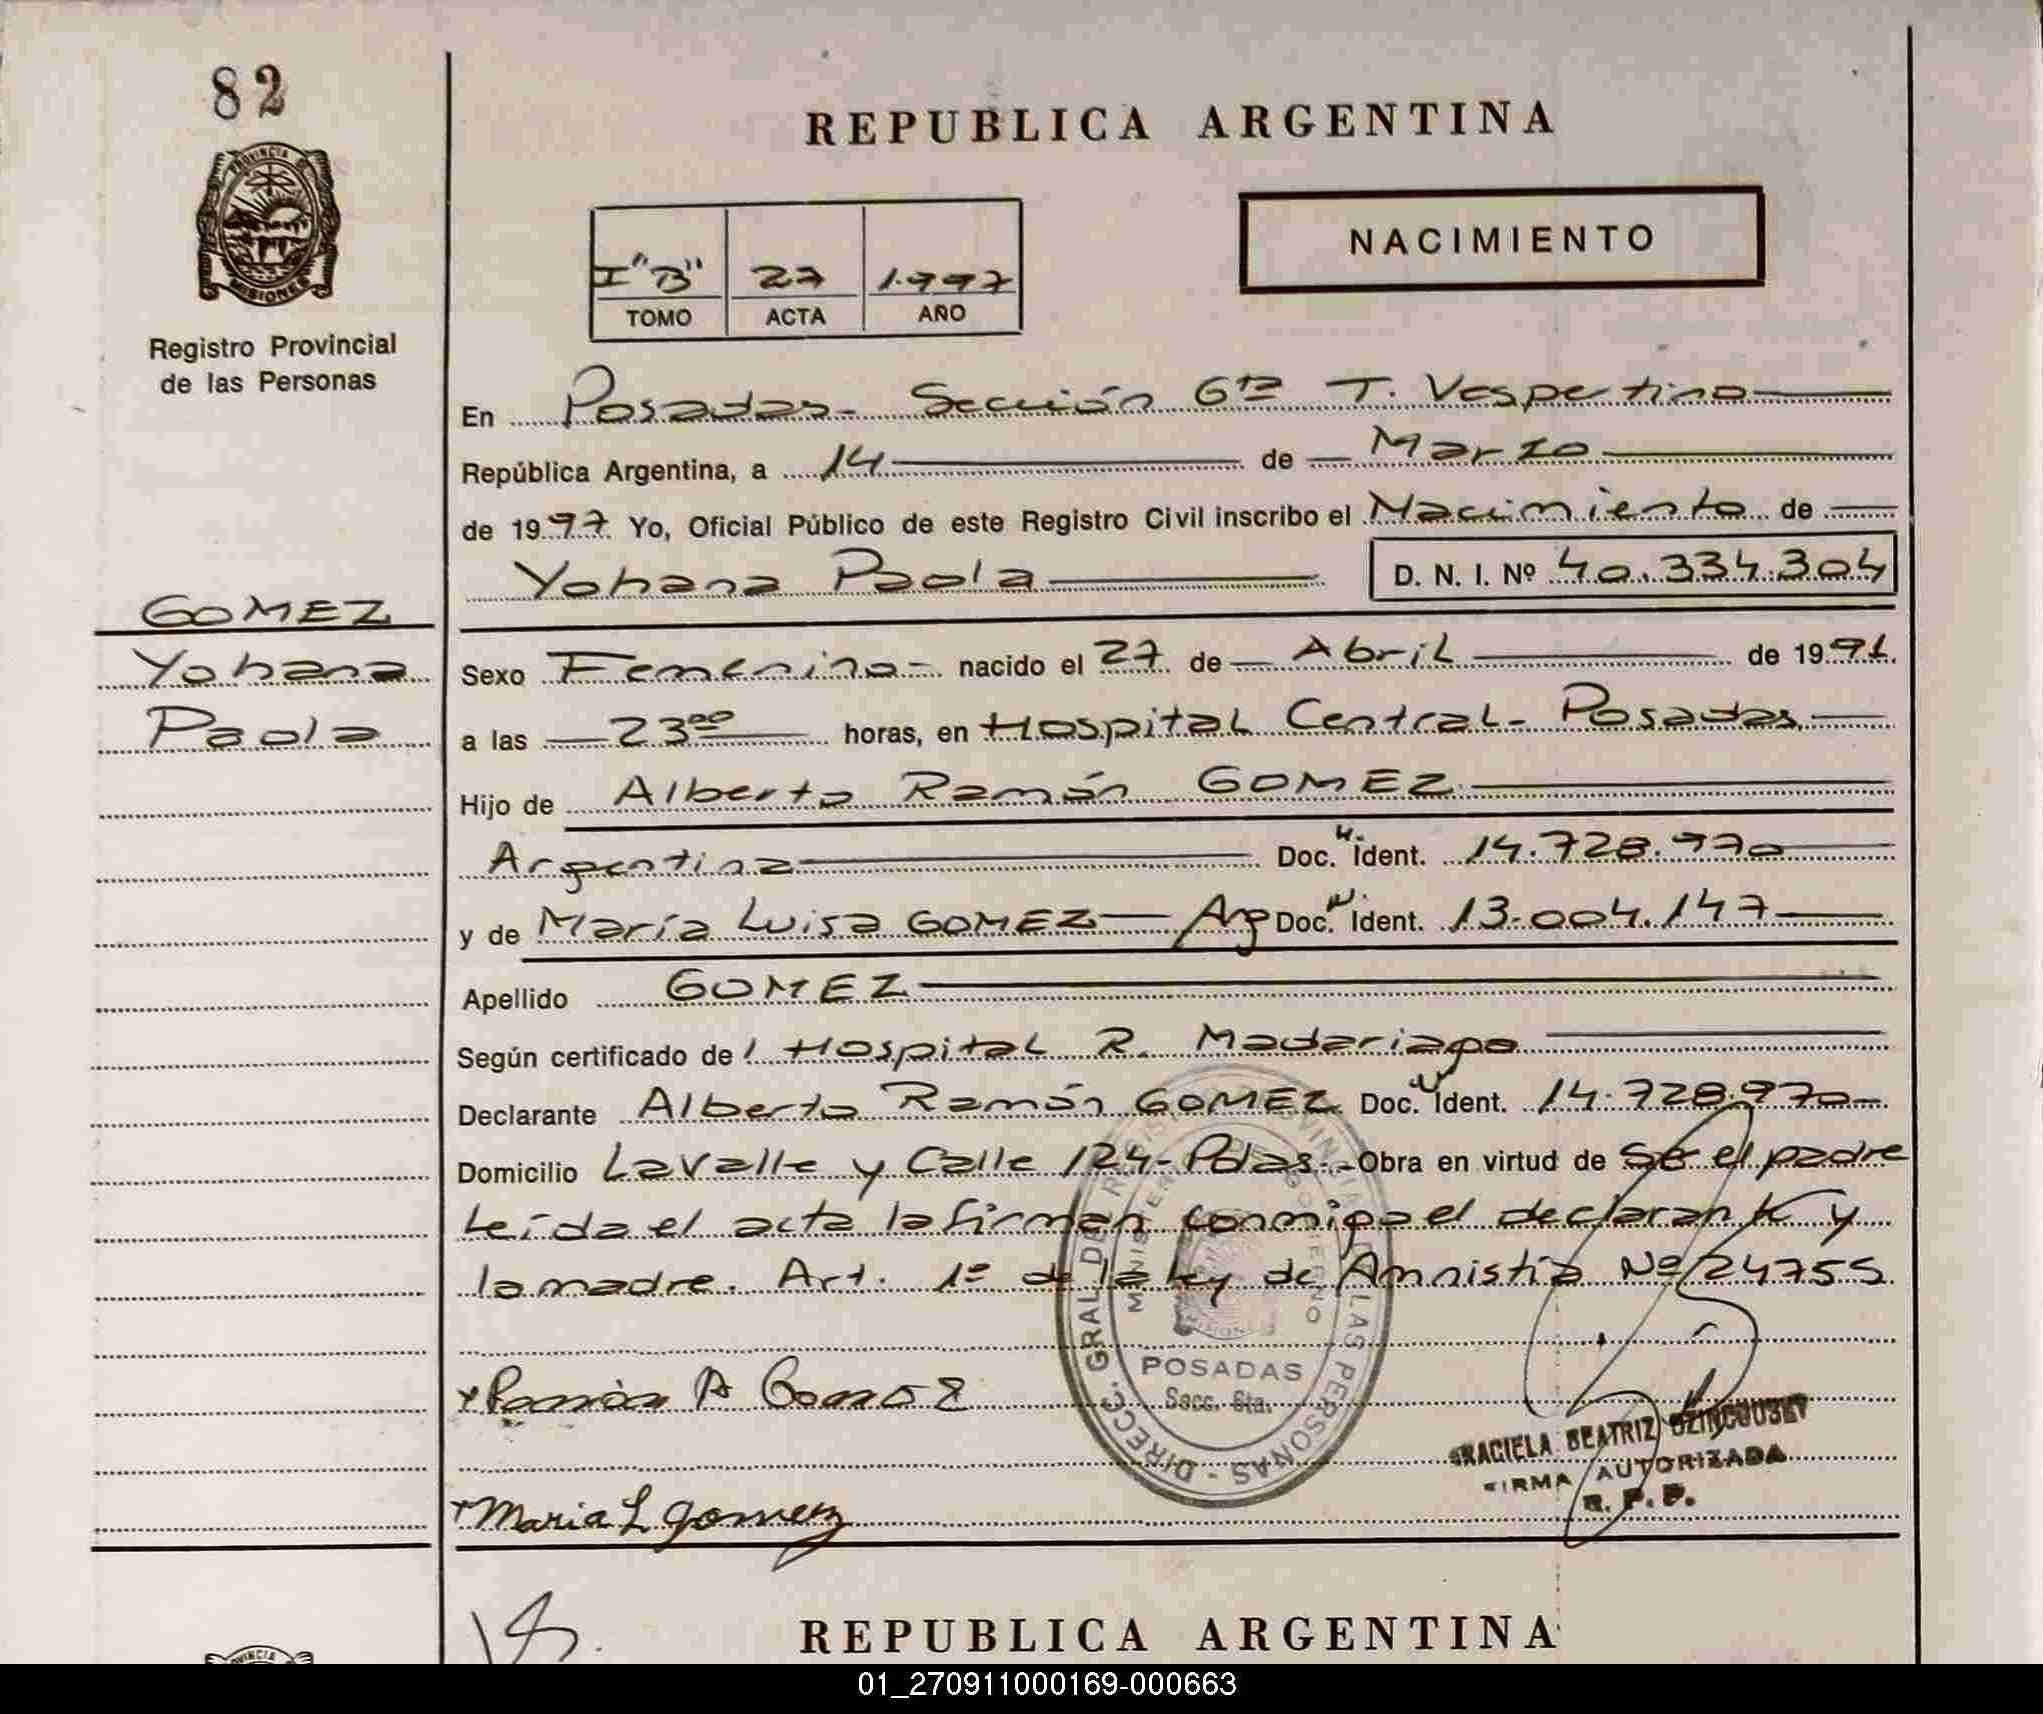 82
PROVINCIA DE
MISIONES
Registro Provincial
de las Personas
REPUBLICA ARGENTINA
NACIMIENTO
I "B" 27 1.997
TOMO ACTA AÑO
En Posadas - Sección 6ta T. Vespertino
República Argentina, a 14 de Marzo
de 1997 Yo, Oficial Público de este Registro Civil inscribo el Nacimiento de
Yohana Paola D. N. I. Nº 40.334.304
GOMEZ
Yohana
Paola
Sexo Femenino - nacido el 27 de Abril de 1991.
a las 23 00 horas, en Hospital Central - Posadas
Hijo de Alberto Ramón GOMEZ
Argentina Doc. N. Ident. 14.728.970
y de María Luisa GOMEZ Arg Doc. N. Ident. 13.004.147
Apellido GOMEZ
Según certificado de l Hospital R. Madariaga
Declarante Alberto Ramón GOMEZ Doc. N Ident. 14.728.970
Domicilio Lavalle y Calle 124 - Pdas. - Obra en virtud de Se el padre
Leída el acta la firman conmigo el declarante y
la madre. Art. 1º de la ley de Amnistía Nº 24755
DIRECC. GRAL DEL REGISTRO PROVINCIAL DE LAS PERSONAS
MINISTERIO DE GOBIERNO
POSADAS
Secc. 6ta.
x Ramón A Gomez
GRACIELA BEATRIZ
FIRMA AUTORIZADA
R. P. P.
x Maria L gomez
REPUBLICA ARGENTINA
01_270911000169-000663